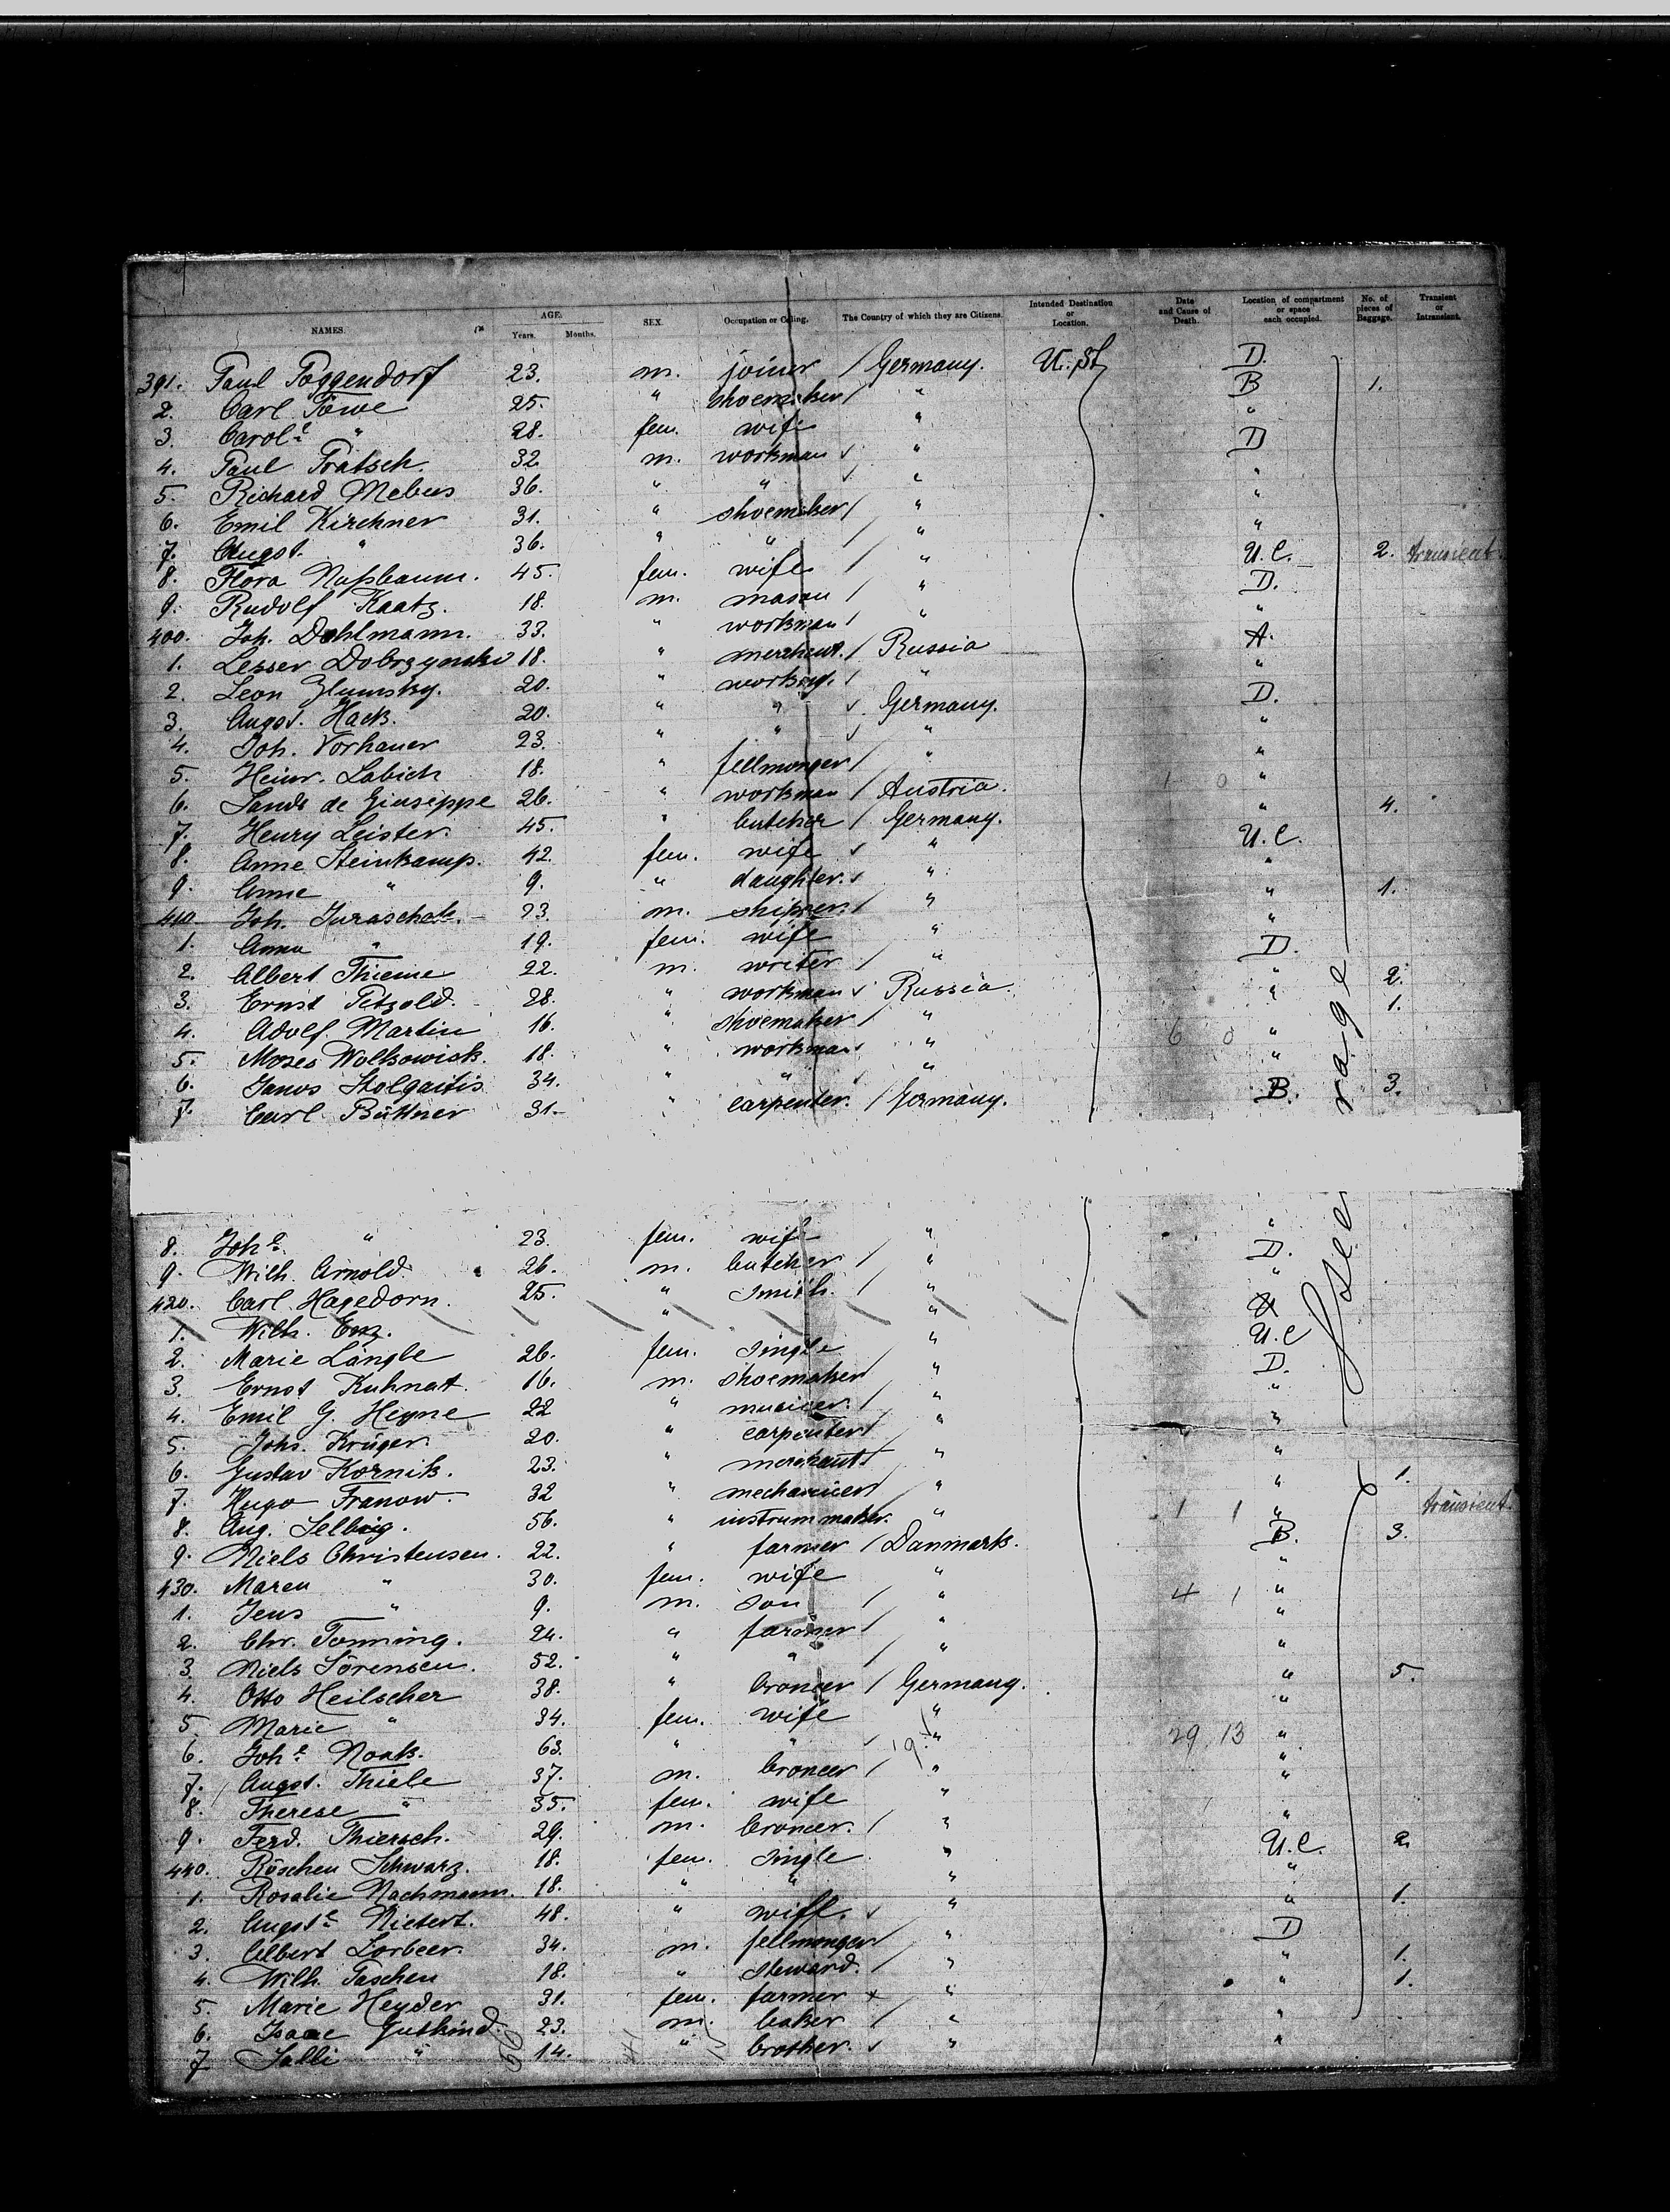 NAMES. AGE. Years. Months. SEX. Occupation or Calling. The Country of which they are Citizens. Intended Destination or Location. Date and Cause of Death. Location of compartment or space each occupied. No. of pieces of Baggage. Transient or Intransient.
391. Paul Poggendorf 23. m. joiner / Germany. U. St. D.
2. Carl Töwe 25. " shoemaker / " B 1.
3. Carolᵉ " 28. fem. wife " "
4. Paul Fratsch. 32 m. workman √ " D
5. Richard Mebus 36. " " √ " "
6. Emil Kirchner 31. " shoemaker / " "
7. Augst. " 36. " " / " "
8. Flora Nußbaum. 45. fem. wife / " U.C. 2. transient.
9. Rudolf Kaatz. 18. m. mason / " D.
400. Joh. Dohlmann. 33. " workman / " "
1. Lesser Dobrzynski 18. " merchant. / Russia A.
2. Leon Glumsky. 20. " workm. / " "
3. Augst. Hack. 20. " " √ Germany. D.
4. Joh. Vorhauer 23. " " √ " "
5. Heinr. Labich 18. " fellmonger / " "
6. Sando de Giuseppe 26. " workman / Austria. 1 0 "
7. Henry Leister. 45. " butcher / Germany. " 4.
8. Anne Steinkamp. 42. fem. wife √ " U.C.
9. Anne " 9. " daughter. √ " "
410 Joh. Juraschek. 23. m. shipper. / " " 1.
1. Anna " 19. fem. wife " "
2. Albert Thieme 22. m. writer / " D.
3. Ernst Petzold. 28. " workman √ Russia. " 2.
4. Adolf Martin 16. " shoemaker / " " 1.
5. Moses Wolkowisk. 18. " workman " 6 0 "
6. Janos Stolgaitis 34. " " √ " "
7. Carl Büttner 31. " carpenter. / Germany. B. 3.
8. Johᵉ. " 23. fem. wife " "
9. Wilh. Arnold. 26. m. butcher / " D.
420. Carl Hagedorn. 25. " smith. / " "
1. Wilh. Enz. " " U
2. Marie Längle 26. fem. single " U.C
3. Ernst Kuhnat. 16. m. shoemaker " D.
4. Emil G. Heyne 22 " musicer. / " "
5. Johs. Krüger. 20. " carpenter / " "
6. Gustav Kornik. 23. " merchant " "
7. Hugo Franow. 32 " mechanicer " " 1.
8. Aug. Selbig. 56. " instrummaker. " 1 1 " transient.
9. Niels Christensen. 22. " farmer / Danmark. B. 3.
430. Maren " 30. fem. wife " "
1. Jens " 9. m. son / " 4 1 "
2. Chr. Tonning. 24. " farmer / " "
3. Niels Sörensen. 52. " " / " "
4. Otto Heilscher 38. " broncer / Germany. " 5.
5. Marie " 34. fem. wife " "
6. Johᵉ Noak. 63. " " √ 19 " 29 13 "
7. Augst. Thiele 37. m. broncer / " "
8. Therese " 35. fem. wife " "
9. Ferd. Thiersch. 29. m. broncer. / " "
440. Röschen Schwarz. 18. fem. single " U.C. 2
1. Rosalie Nachmann. 18. " " " "
2. Augstᵉ Nietert. 48. " wiffe. √ " " 1.
3. Albert Lorbeer. 34. m. fellmonger " D
4. Wilh. Taschen 18. " steward. / " " 1.
5. Marie Heyder 31. fem. farmer x " " 1.
6. Isaac Gutkind. 23. m. baker / " "
7 Salli " 14. " brother. √ " "
Steerage